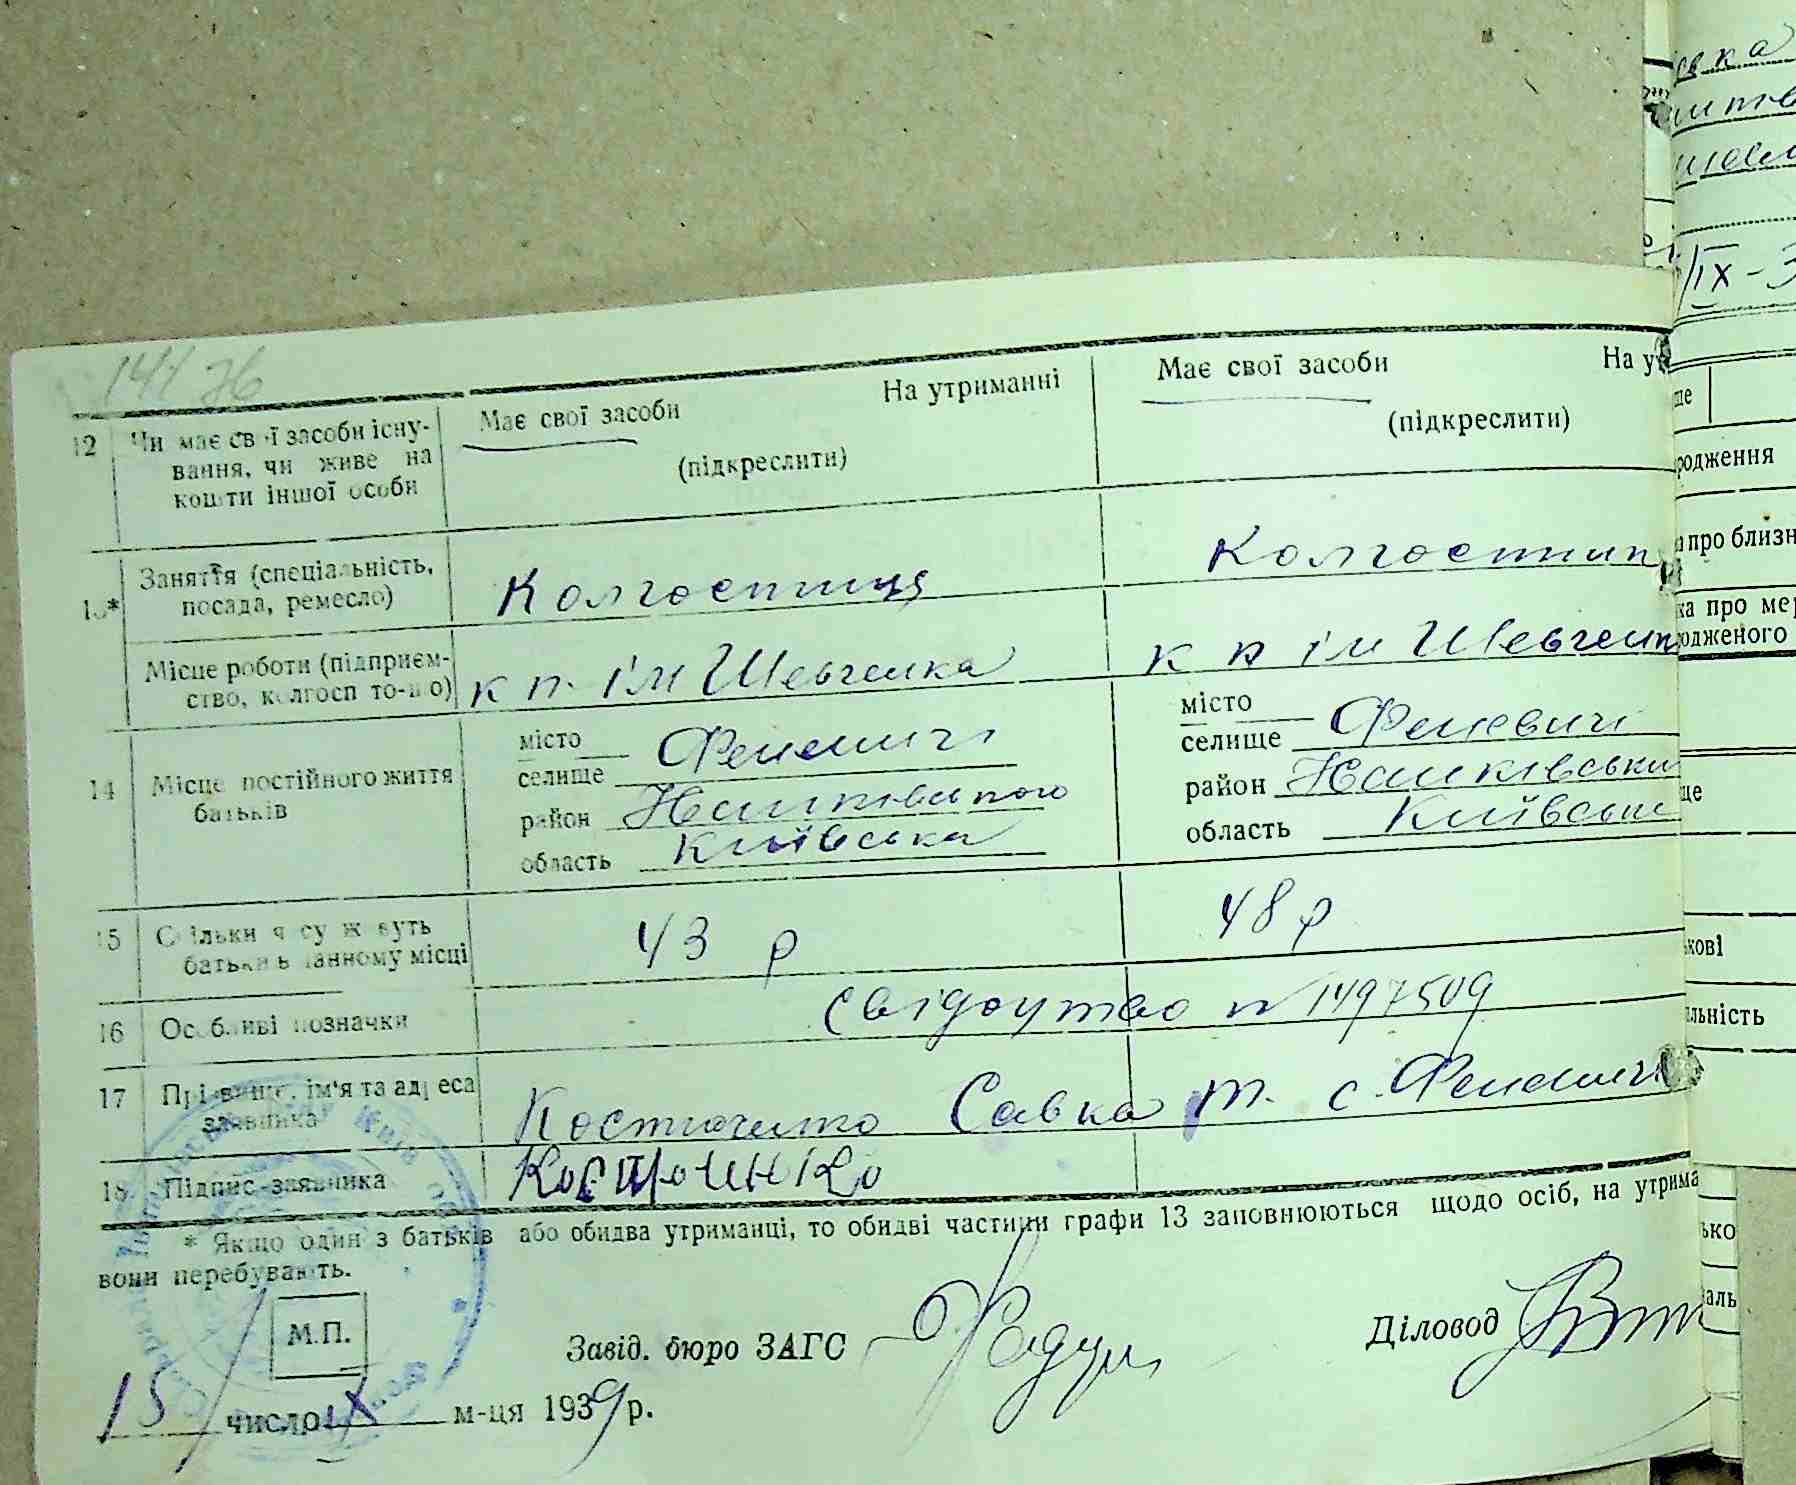 Має свої засоби На утриманні Має свої засоби
12 Чи має свої засоби існу-
вання, чи живе на
кошти іншої особи
(підкреслити) (підкреслити)
13* Заняття (спеціальність,
посада, ремесло)
Колгоспниця Колгоспник
Місце роботи (підприєм-
ство, колгосп то-що)
к п. ім Шевченка к п ім Шевченк
14 Місце постійного життя
батьків
місто
селище Феневичі
район
область Київська
місто
селище Феневичі
район
область Київськ
15 Скільки часу живуть
батьки в данному місці
43 р 48 р
16 Особливі позначки свідоцтво № 1497509
17 Прізвище, ім'я та адреса
заявника
Савка Т. с. Феневичі
18 Підпис заявника
* Якщо один з батьків або обидва утриманці, то обидві частини графи 13 заповнюються щодо осіб, на утрима
вони перебувають.
М.П.
Завід. бюро ЗАГС Діловод
15 число IX м-ця 1939 р.
вка
/IX-3
родження
про близн
ка про мер
одженого
ькові
льність